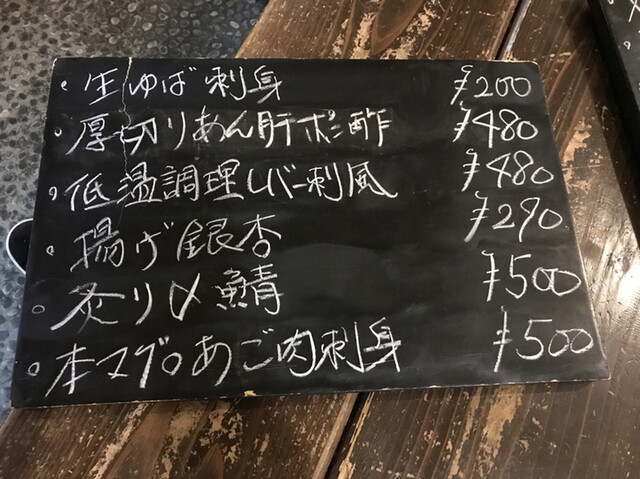 。生ゆば刺身 ¥200
。厚切りあん肝ポン酢 ¥480
。低温調理レバー刺風 ¥480
。揚げ銀杏 ¥290
。炙り〆鯖 ¥500
。本マグロあご肉刺身 ¥500